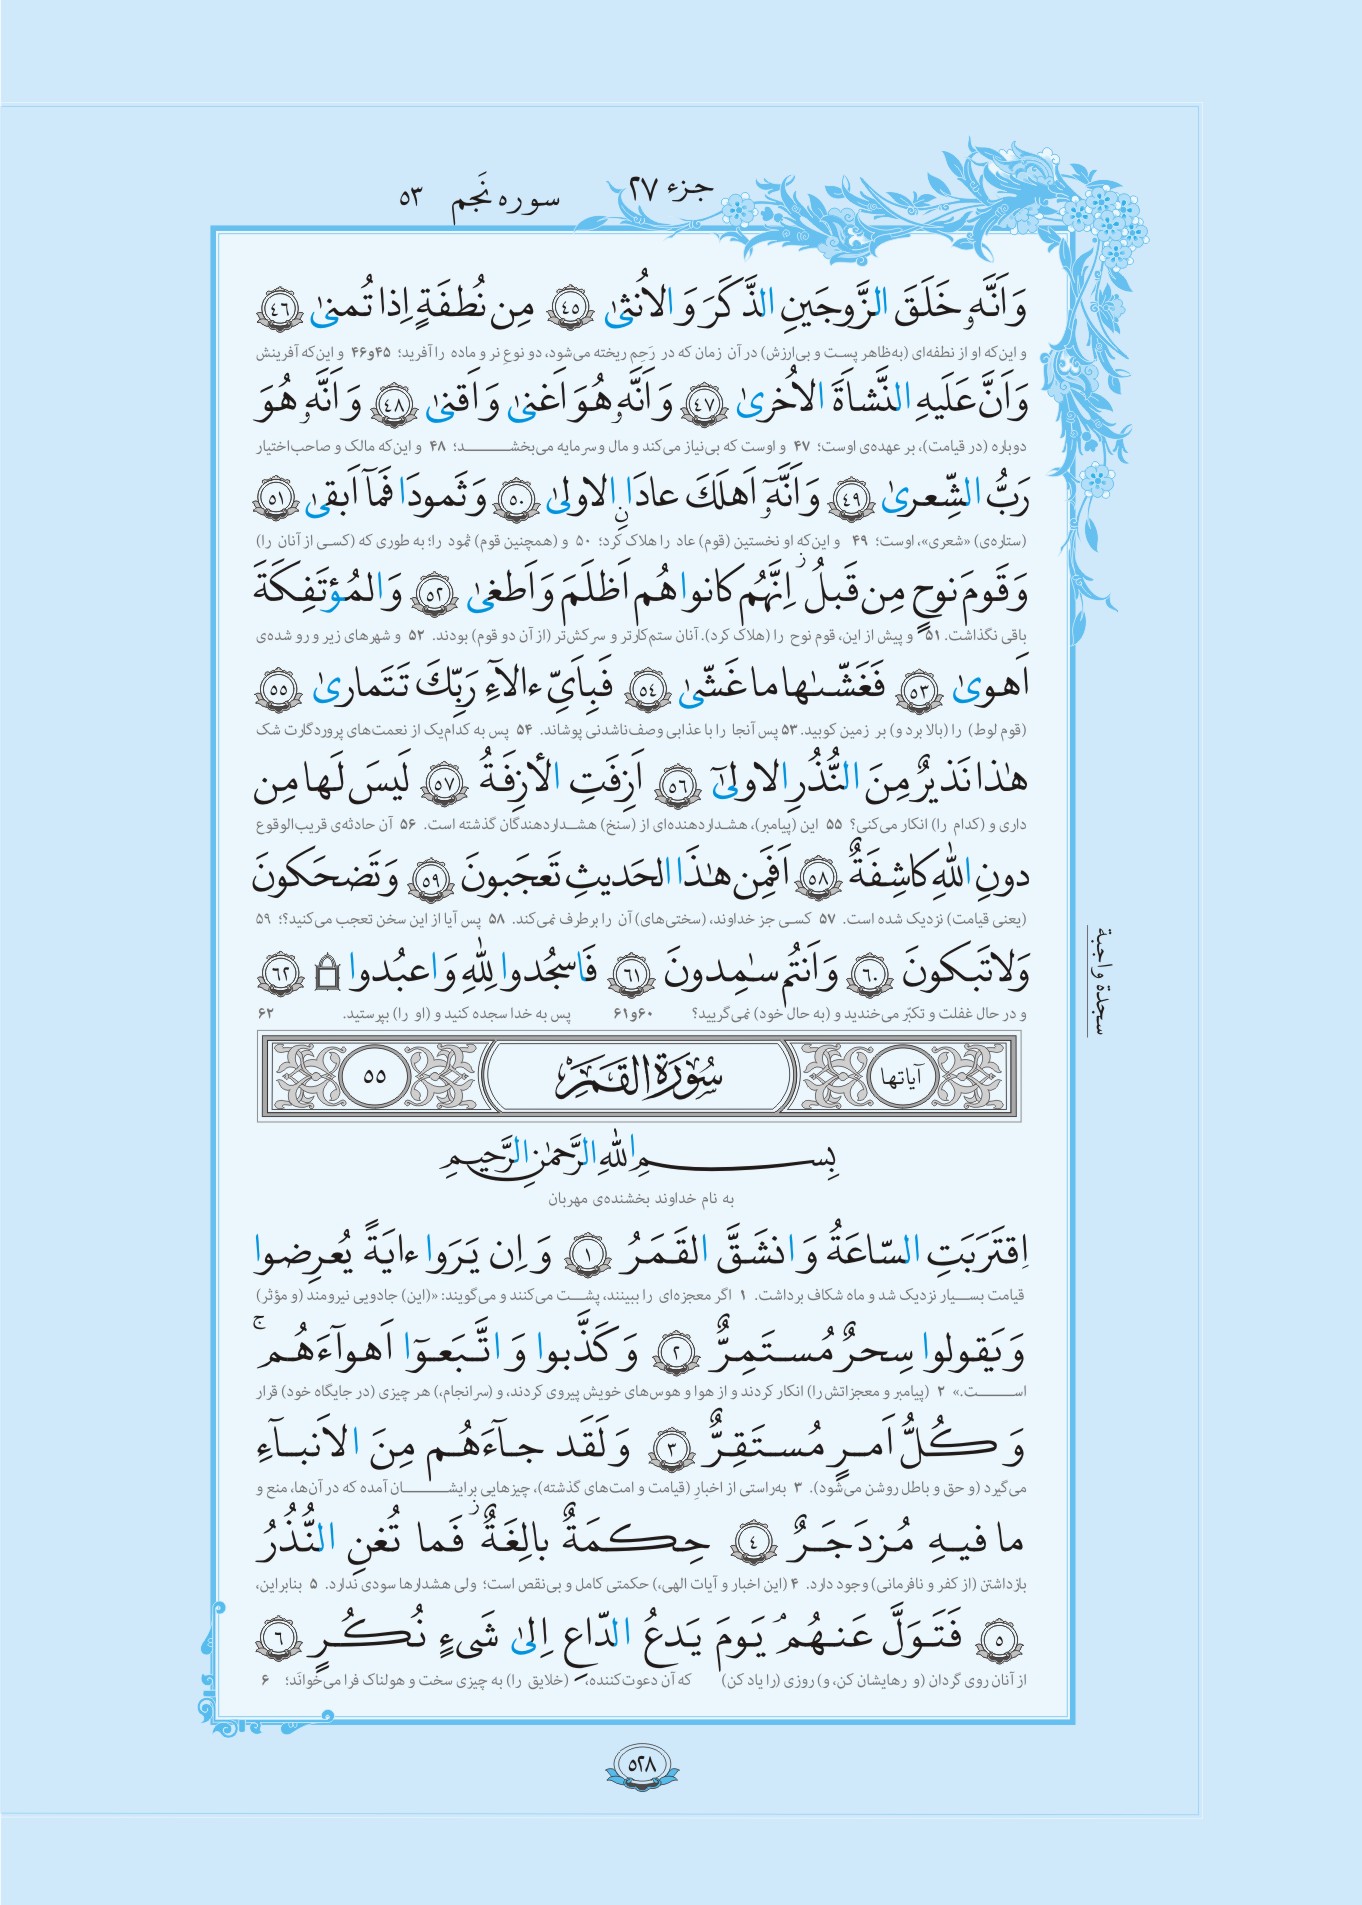 جزء ۲۷
سوره نَجم ۵۳
وَ اَنَّهٗ خَلَقَ الزَّوجَینِ الذَّکَرَ وَ الاُنثیٰ ﴿٤٥﴾ مِن نُطفَةٍ اِذا تُمنیٰ ﴿٤٦﴾
و این‌که او از نطفه‌ای (به‌ظاهر پست و بی‌ارزش) در آن زمان که در رَحِم ریخته می‌شود، دو نوعِ نر و ماده را آفرید؛ ۴۵و۴۶ و این‌که آفرینش
وَ اَنَّ عَلَیهِ النَّشاَةَ الاُخریٰ ﴿٤٧﴾ وَ اَنَّهٗ هُوَ اَغنیٰ وَ اَقنیٰ ﴿٤٨﴾ وَ اَنَّهٗ هُوَ
دوباره (در قیامت)، بر عهده‌ی اوست؛ ۴۷ و اوست که بی‌نیاز می‌کند و مال و سرمایه می‌بخشـــد؛ ۴۸ و این‌که مالک و صاحب‌اختیار
رَبُّ الشِّعریٰ ﴿٤٩﴾ وَ اَنَّهٗٓ اَهلَکَ عادًا نِ الاولیٰ ﴿٥٠﴾ وَ ثَمودَا فَمآ اَبقیٰ ﴿٥١﴾
(ستاره‌ی) «شعری»، اوست؛ ۴۹ و این‌که او نخستین (قوم) عاد را هلاک کرد؛ ۵۰ و (همچنین قوم) ثمود را؛ به طوری که (کسی از آنان را)
وَ قَومَ نوحٍ مِن قَبلُ ۖ اِنَّهُم کانوا هُم اَظلَمَ وَ اَطغیٰ ﴿٥٢﴾ وَ المُؤتَفِکَةَ
باقی نگذاشت. ۵۱ و پیش از این، قوم نوح را (هلاک کرد). آنان ستم‌کارتر و سرکش‌تر (از آن دو قوم) بودند. ۵۲ و شهرهای زیر و رو شده‌ی
اَهویٰ ﴿٥٣﴾ فَغَشّـٰها ما غَشّیٰ ﴿٥٤﴾ فَبِاَیِّ ءالآءِ رَبِّکَ تَتَماریٰ ﴿٥٥﴾
(قوم لوط) را (بالا برد و) بر زمین کوبید. ۵۳ پس آنجا را با عذابی وصف‌ناشدنی پوشاند. ۵۴ پس به کدام‌یک از نعمت‌های پروردگارت شک
هـٰذا نَذیرٌ مِنَ النُّذُرِ الاولیٰٓ ﴿٥٦﴾ اَزِفَتِ الأزِفَةُ ﴿٥٧﴾ لَیسَ لَها مِن
داری و (کدام را) انکار می‌کنی؟ ۵۵ این (پیامبر)، هشداردهنده‌ای از (سنخ) هشداردهندگان گذشته است. ۵۶ آن حادثه‌ی قریب‌الوقوع
دونِ اللهِ کاشِفَةٌ ﴿٥٨﴾ اَفَمِن هـٰذَا الحَدیثِ تَعجَبونَ ﴿٥٩﴾ وَ تَضحَکونَ
(یعنی قیامت) نزدیک شده است. ۵۷ کسی جز خداوند، (سختی‌های) آن را برطرف نمی‌کند. ۵۸ پس آیا از این سخن تعجب می‌کنید؟! ۵۹
وَ لا تَبکونَ ﴿٦٠﴾ وَ اَنتُم سـٰمِدونَ ﴿٦١﴾ فَاسجُدوا لِلّٰهِ وَ اعبُدوا ۩ ﴿٦٢﴾
و در حال غفلت و تکبّر می‌خندید و (به حال خود) نمی‌گریید؟ ۶۰و۶۱ پس به خدا سجده کنید و (او را) بپرستید. ۶۲
سجدة واجبة
آیاتها سُورَةُ القَمَر ٥٥
بِسـمِ اللهِ الرَّحمٰنِ الرَّحیمِ
به نام خداوند بخشنده‌ی مهربان
اِقتَرَبَتِ السّاعَةُ وَ انشَقَّ القَمَرُ ﴿١﴾ وَ اِن یَرَوا ءایَةً یُعرِضوا
قیامت بســیار نزدیک شد و ماه شکاف برداشت. ۱ اگر معجزه‌ای را ببینند، پشــت می‌کنند و می‌گویند: «(این) جادویی نیرومند (و مؤثر)
وَ یَقولوا سِحرٌ مُستَمِرٌّ ﴿٢﴾ وَ کَذَّبوا وَ اتَّبَعوٓا اَهوآءَهُم ۚ
اســـت.» ۲ (پیامبر و معجزاتش را) انکار کردند و از هوا و هوس‌های خویش پیروی کردند، و (سرانجام،) هر چیزی (در جایگاه خود) قرار
وَ کُلُّ اَمرٍ مُستَقِرٌّ ﴿٣﴾ وَ لَقَد جآءَهُم مِنَ الاَنبآءِ
می‌گیرد (و حق و باطل روشن می‌شود). ۳ به‌راستی از اخبارِ (قیامت و امت‌های گذشته)، چیزهایی برایشـــان آمده که در آن‌ها، منع و
ما فیهِ مُزدَجَرٌ ﴿٤﴾ حِکمَةٌ بالِغَةٌ ۖ فَما تُغنِ النُّذُرُ
بازداشتن (از کفر و نافرمانی) وجود دارد. ۴ (این اخبار و آیات الهی،) حکمتی کامل و بی‌نقص است؛ ولی هشدارها سودی ندارد. ۵ بنابراین،
﴿٥﴾ فَتَوَلَّ عَنهُم ۘ یَومَ یَدعُ الدّاعِ اِلیٰ شَیءٍ نُکُرٍ ﴿٦﴾
از آنان روی گردان (و رهایشان کن، و) روزی (را یاد کن) که آن دعوت‌کننده، (خلایق را) به چیزی سخت و هولناک فرا می‌خواند؛ ۶
۵۲۸